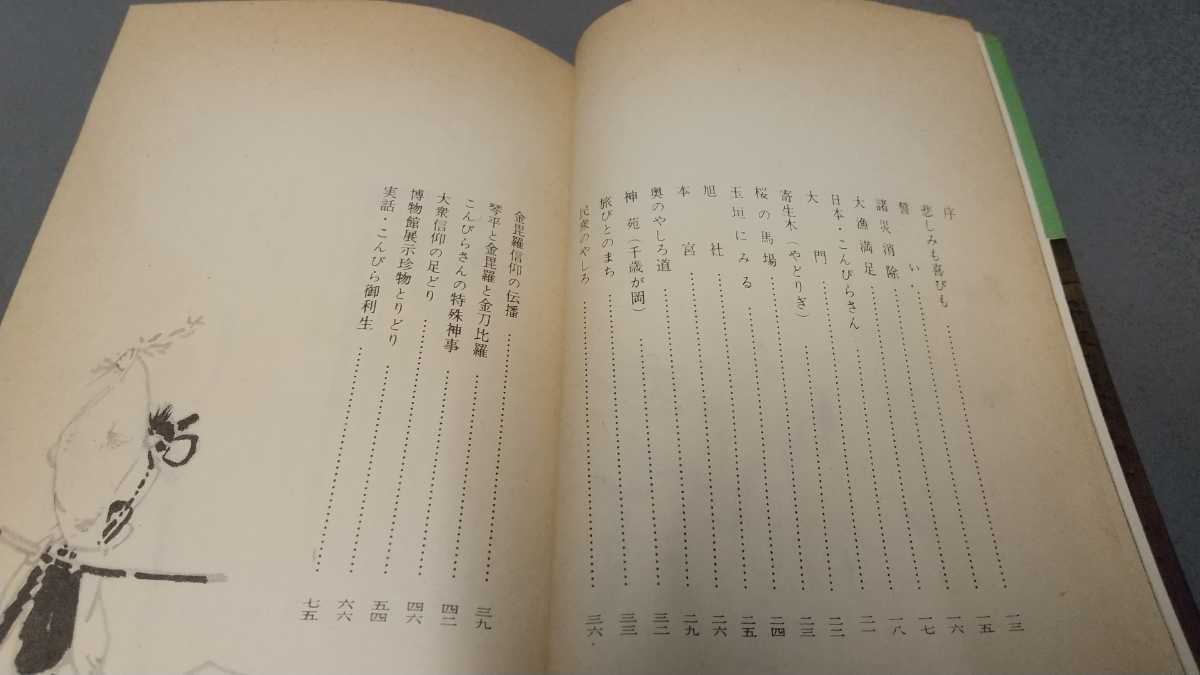 序
悲しみも喜びも……一三
誓い……一五
諸災消除……一六
大漁満足……一七
日本・こんぴらさん……一八
大門……二一
寄生木(やどりぎ)……二二
桜の馬場……二三
玉垣にみる……二四
旭社……二五
本宮……二六
奥のやしろ道……二九
神苑(千歳が岡)……三二
旅びとのまち……三三
民衆のやしろ……三六
金毘羅信仰の伝播……三九
琴平と金毘羅と金刀比羅……四二
こんぴらさんの特殊神事……四六
大衆信仰の足どり……五四
博物館展示珍物とりどり……六六
実話・こんぴら御利生……七五